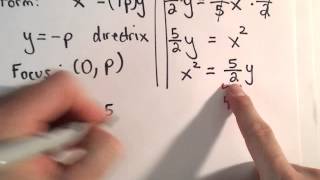 form: x² = (4p)y
y = -p directrix
Focus: (0, p)
5
5/2 y = 2/5 x² · 5/2
5/2 y = x²
x² = 5/2 y